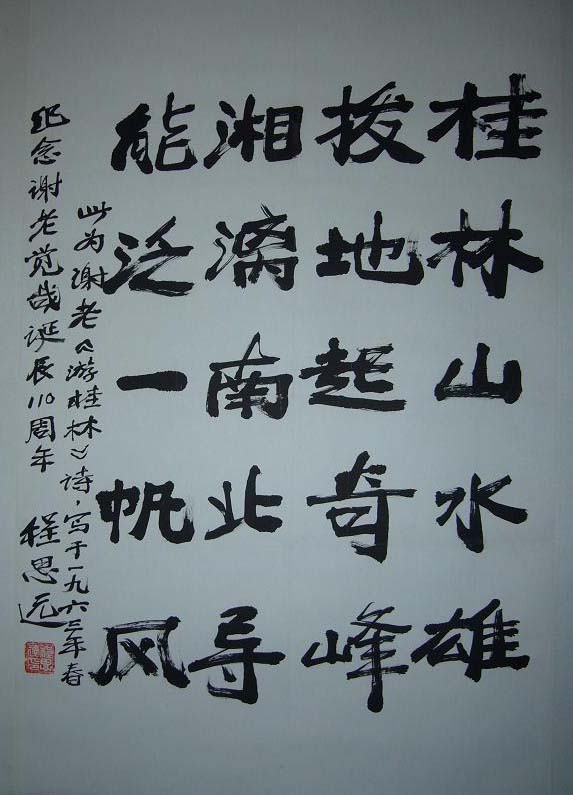 桂林山水雄
拨地起奇峰
湘漓南北导
能泛一帆风
此为谢老《游桂林》诗，写于一九六三年春
纪念谢老觉哉诞辰110周年
程思远